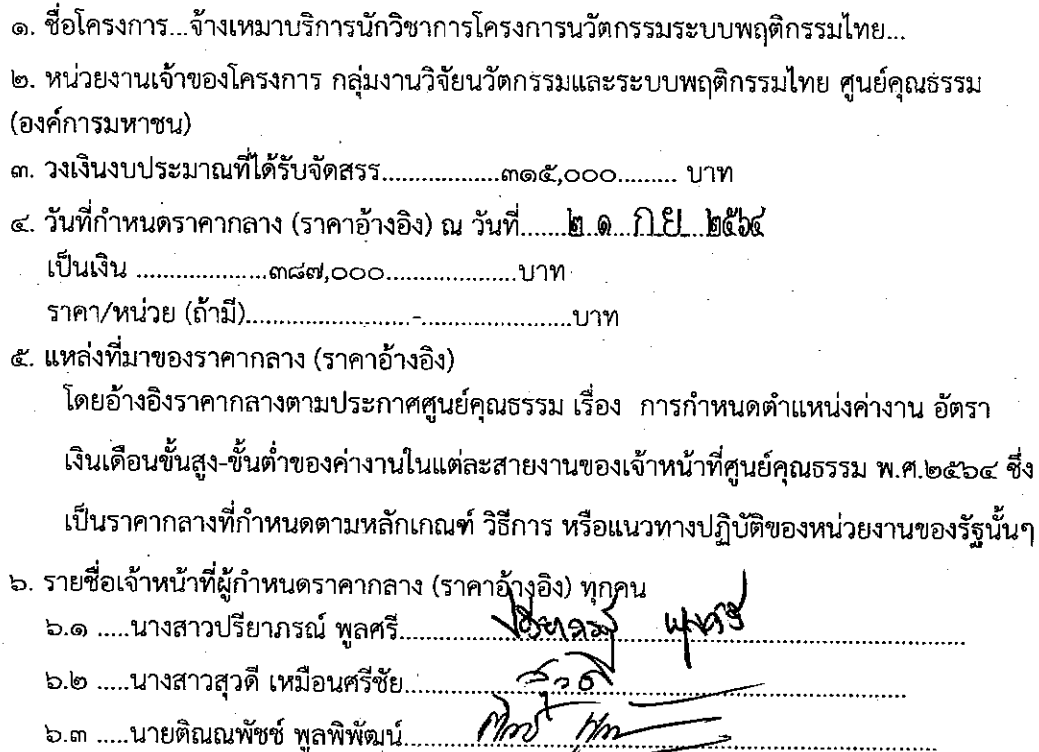 ๑. ชื่อโครงการ...จ้างเหมาบริการนักวิชาการโครงการนวัตกรรมระบบพฤติกรรมไทย...
๒. หน่วยงานเจ้าของโครงการ กลุ่มงานวิจัยนวัตกรรมและระบบพฤติกรรมไทย ศูนย์คุณธรรม
(องค์การมหาชน)
๓. วงเงินงบประมาณที่ได้รับจัดสรร..................๓๑๕,๐๐๐......... บาท
๔. วันที่กำหนดราคากลาง (ราคาอ้างอิง) ณ วันที่.......๒ ๑ ก.ย. ๒๕๖๔
เป็นเงิน ...................๓๘๗,๐๐๐....................บาท
ราคา/หน่วย (ถ้ามี).........................-.......................บาท
๕. แหล่งที่มาของราคากลาง (ราคาอ้างอิง)
โดยอ้างอิงราคากลางตามประกาศศูนย์คุณธรรม เรื่อง การกำหนดตำแหน่งค่างาน อัตรา
เงินเดือนขั้นสูง-ขั้นต่ำของค่างานในแต่ละสายงานของเจ้าหน้าที่ศูนย์คุณธรรม พ.ศ.๒๕๖๔ ซึ่ง
เป็นราคากลางที่กำหนดตามหลักเกณฑ์ วิธีการ หรือแนวทางปฏิบัติของหน่วยงานของรัฐนั้นๆ
๖. รายชื่อเจ้าหน้าที่ผู้กำหนดราคากลาง (ราคาอ้างอิง) ทุกคน
๖.๑ .....นางสาวปรียาภรณ์ พูลศรี
๖.๒ .....นางสาวสุวดี เหมือนศรีชัย
๖.๓ .....นายติณณพัชช์ พูลพิพัฒน์